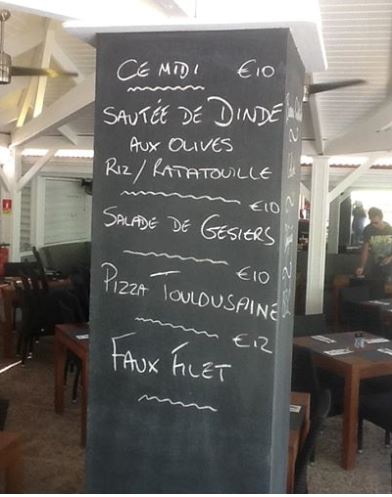 CE MIDI €10
SAUTÉE DE DINDE
AUX OLIVES
RIZ/RATATOUILLE
€10
SALADE DE GESIERS
€10
PIZZA TOULOUSAINE
€12
FAUX FILET